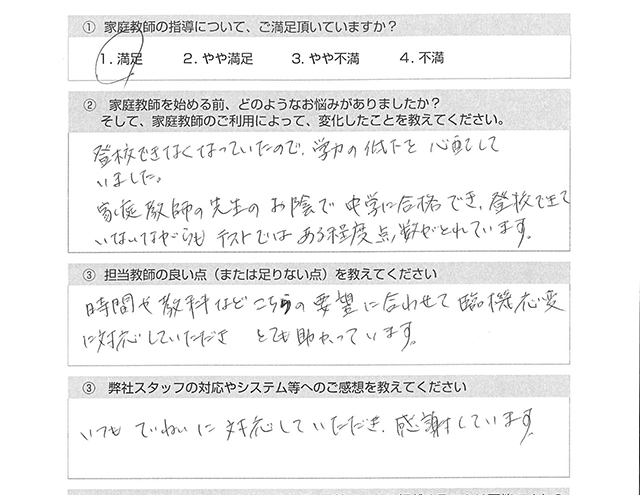 ① 家庭教師の指導について、ご満足頂いていますか？
1. 満足　2. やや満足　3. やや不満　4. 不満
② 家庭教師を始める前、どのようなお悩みがありましたか？
そして、家庭教師のご利用によって、変化したことを教えてください。
登校できなくなっていたので、学力の低下を心配して
いました。
家庭教師の先生のお陰で中学に合格でき、登校できて
いないながらもテストではある程度点数がとれています。
③ 担当教師の良い点（または足りない点）を教えてください
時間や教科などこちらの要望に合わせて臨機応変
に対応していただき とても助かっています。
③ 弊社スタッフの対応やシステム等へのご感想を教えてください
いつも ていねいに 対応していただき、感謝しています。